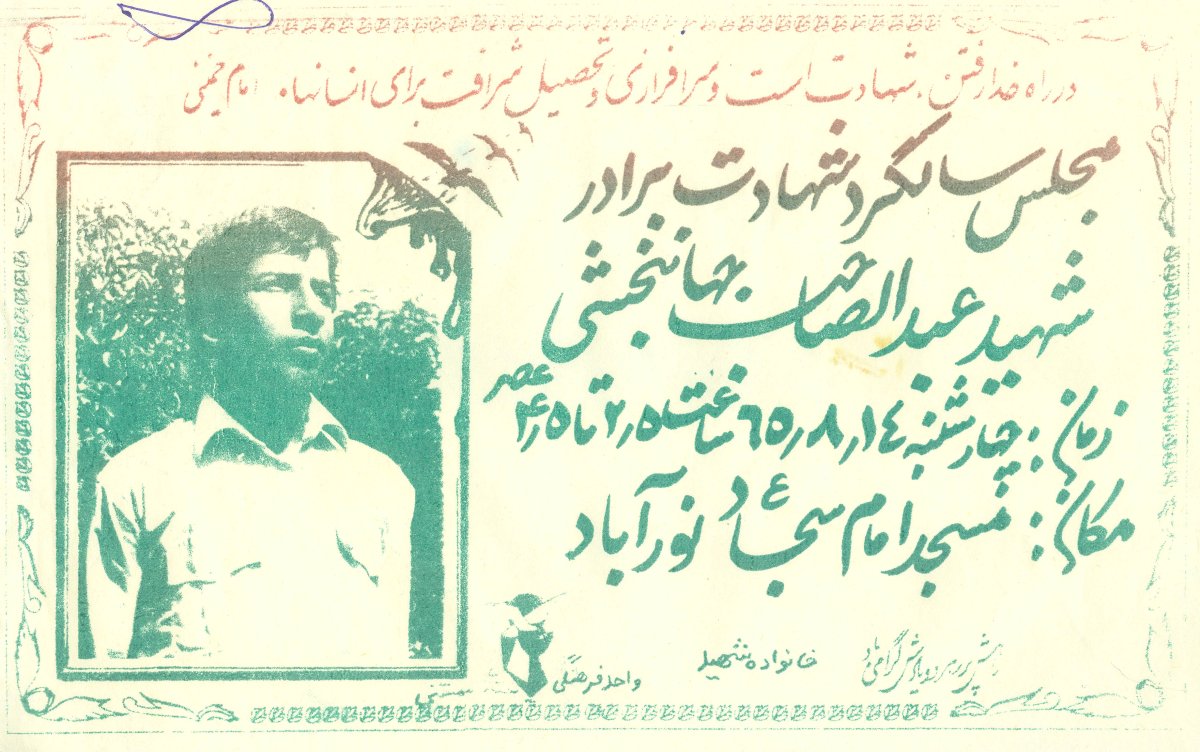 در راه خدا رفتن، شهادت است و سرافرازی و تحصیل شرافت برای انسانها. امام خمینی
مجلس سالگرد شهادت برادر
شهید عبدالصاحب جهانبخشی
زمان: چهارشنبه ۶۵٫۸٫۱۴ ساعت ۲٫۵ تا ۴٫۵ عصر
مکان: مسجد امام سجاد ع نورآباد
راهش پر رهرو و یادش گرامی باد
خانواده شهید
واحد فرهنگی